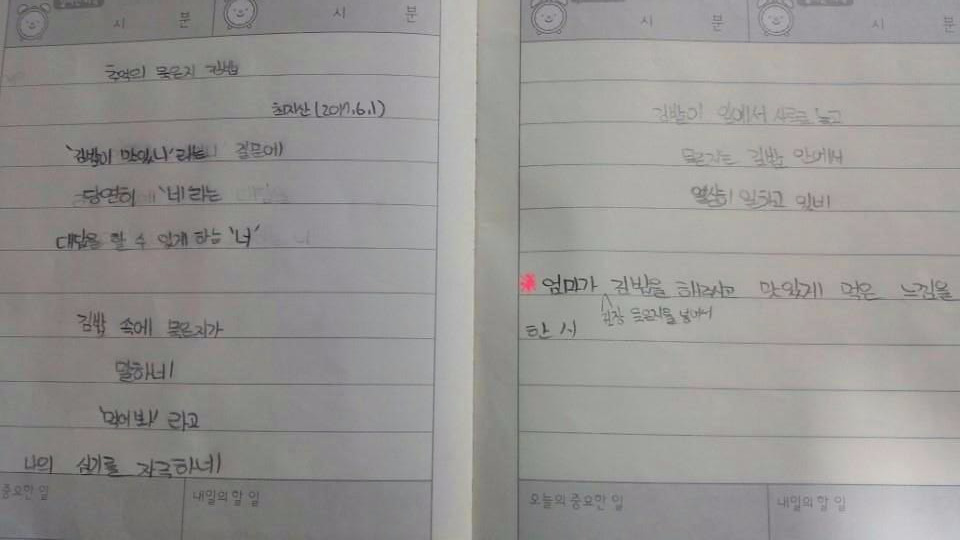 시 분 시 분
추억의 묵은지 김밥
최지산(2017.6.1)
'김밥이 맛있니'라는 질문에
당연히 '네'라는
대답을 할 수 있게 하는 '너'
김밥 속에 묵은지가
말하네
'먹어봐' 라고
나의 심기를 자극하네
중요한 일 내일의 할 일
시 분 시 분
김밥이 입에서 사르르 녹고
묵은지는 김밥 안에서
열심히 일하고 있네
엄마가 김밥을 해주시고 맛있게 먹은 느낌을
김장 묵은지를 넣어서
한 시
오늘의 중요한 일 내일의 할 일